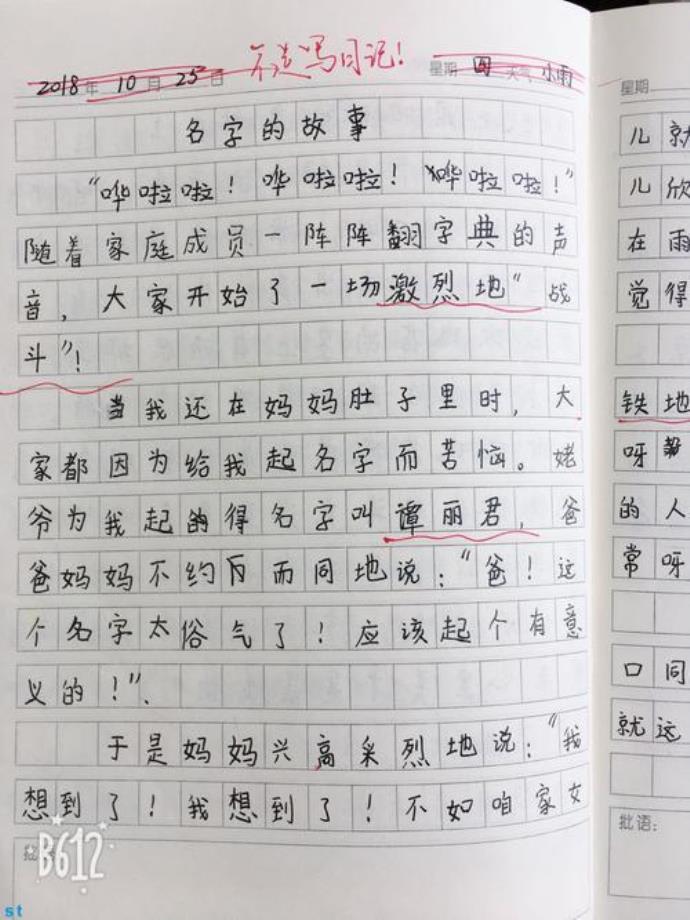 不是写日记！
2018年 10月 25日 星期 四 天气 小雨
名字的故事
“哗啦啦！哗啦啦！哗啦啦！”
随着家庭成员一阵阵翻字典的声
音，大家开始了一场激烈地“战
斗”！
当我还在妈妈肚子里时，大
家都因为给我起名字而苦恼。姥
爷为我起的得名字叫谭丽君，爸
爸妈妈不约而同地说：“爸！这
个名字太俗气了！应该起个有意
义的！”、
于是妈妈兴高采烈地说：“我
想到了！我想到了！不如咱家女
批
B612
st
星期
儿就
儿欣
在雨
觉得
铁地
呀
的人
常呀
口同
就远
批语：